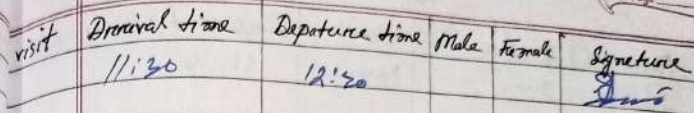 visit Arrival time Depature time Male Female Signeture
11:30 12:30